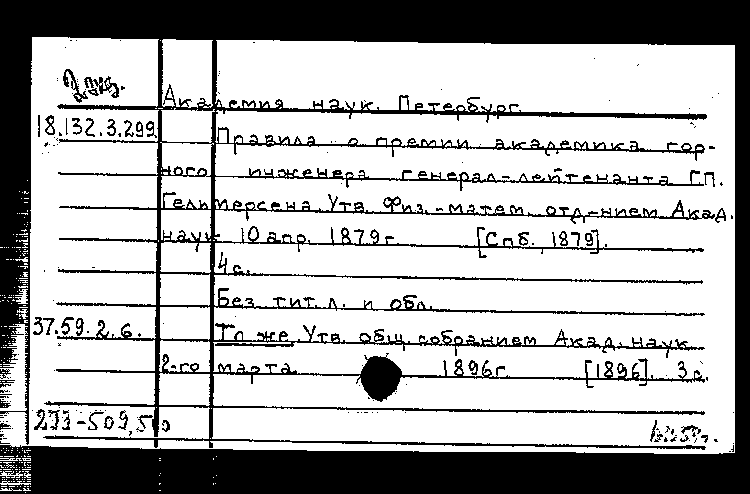 2 экз.
Академия наук. Петербург.
18.132.3.299
Правила о премии академика гор-
ного инженера генерал-лейтенанта Г.П.
Гельмерсена. Утв. Физ.-матем. отд-нием Акад.
наук 10 апр. 1879г. [Спб., 1879].
4 с.
Без тит. л. и обл.
37.59.2.6. То же. Утв. общ. собранием Акад. наук
2-го марта 1896г. [1896]. 3 с.